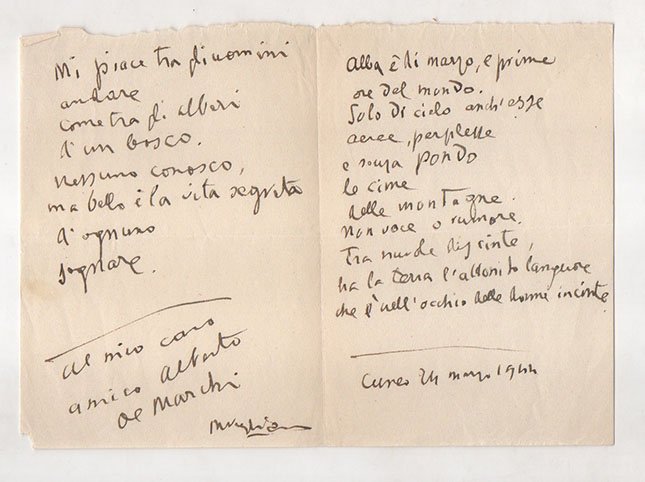 Mi piace tra gli uomini
andare
come tra gli alberi
d'un bosco.
nessuno conosco,
ma bello è la vita segreta
d'ognuno
sognare.
al mio caro
amico Alberto
De Marchi
alba è di marzo, e prime
ore del mondo.
Solo di cielo anch'esse
aeree, perplesse
e senza pondo
le cime
delle montagne.
non voce o rumore.
Tra nuvole discinte,
ha la terra l'attonito languore
che è nell'occhio delle donne incinte.
Cuneo 24 marzo 1944